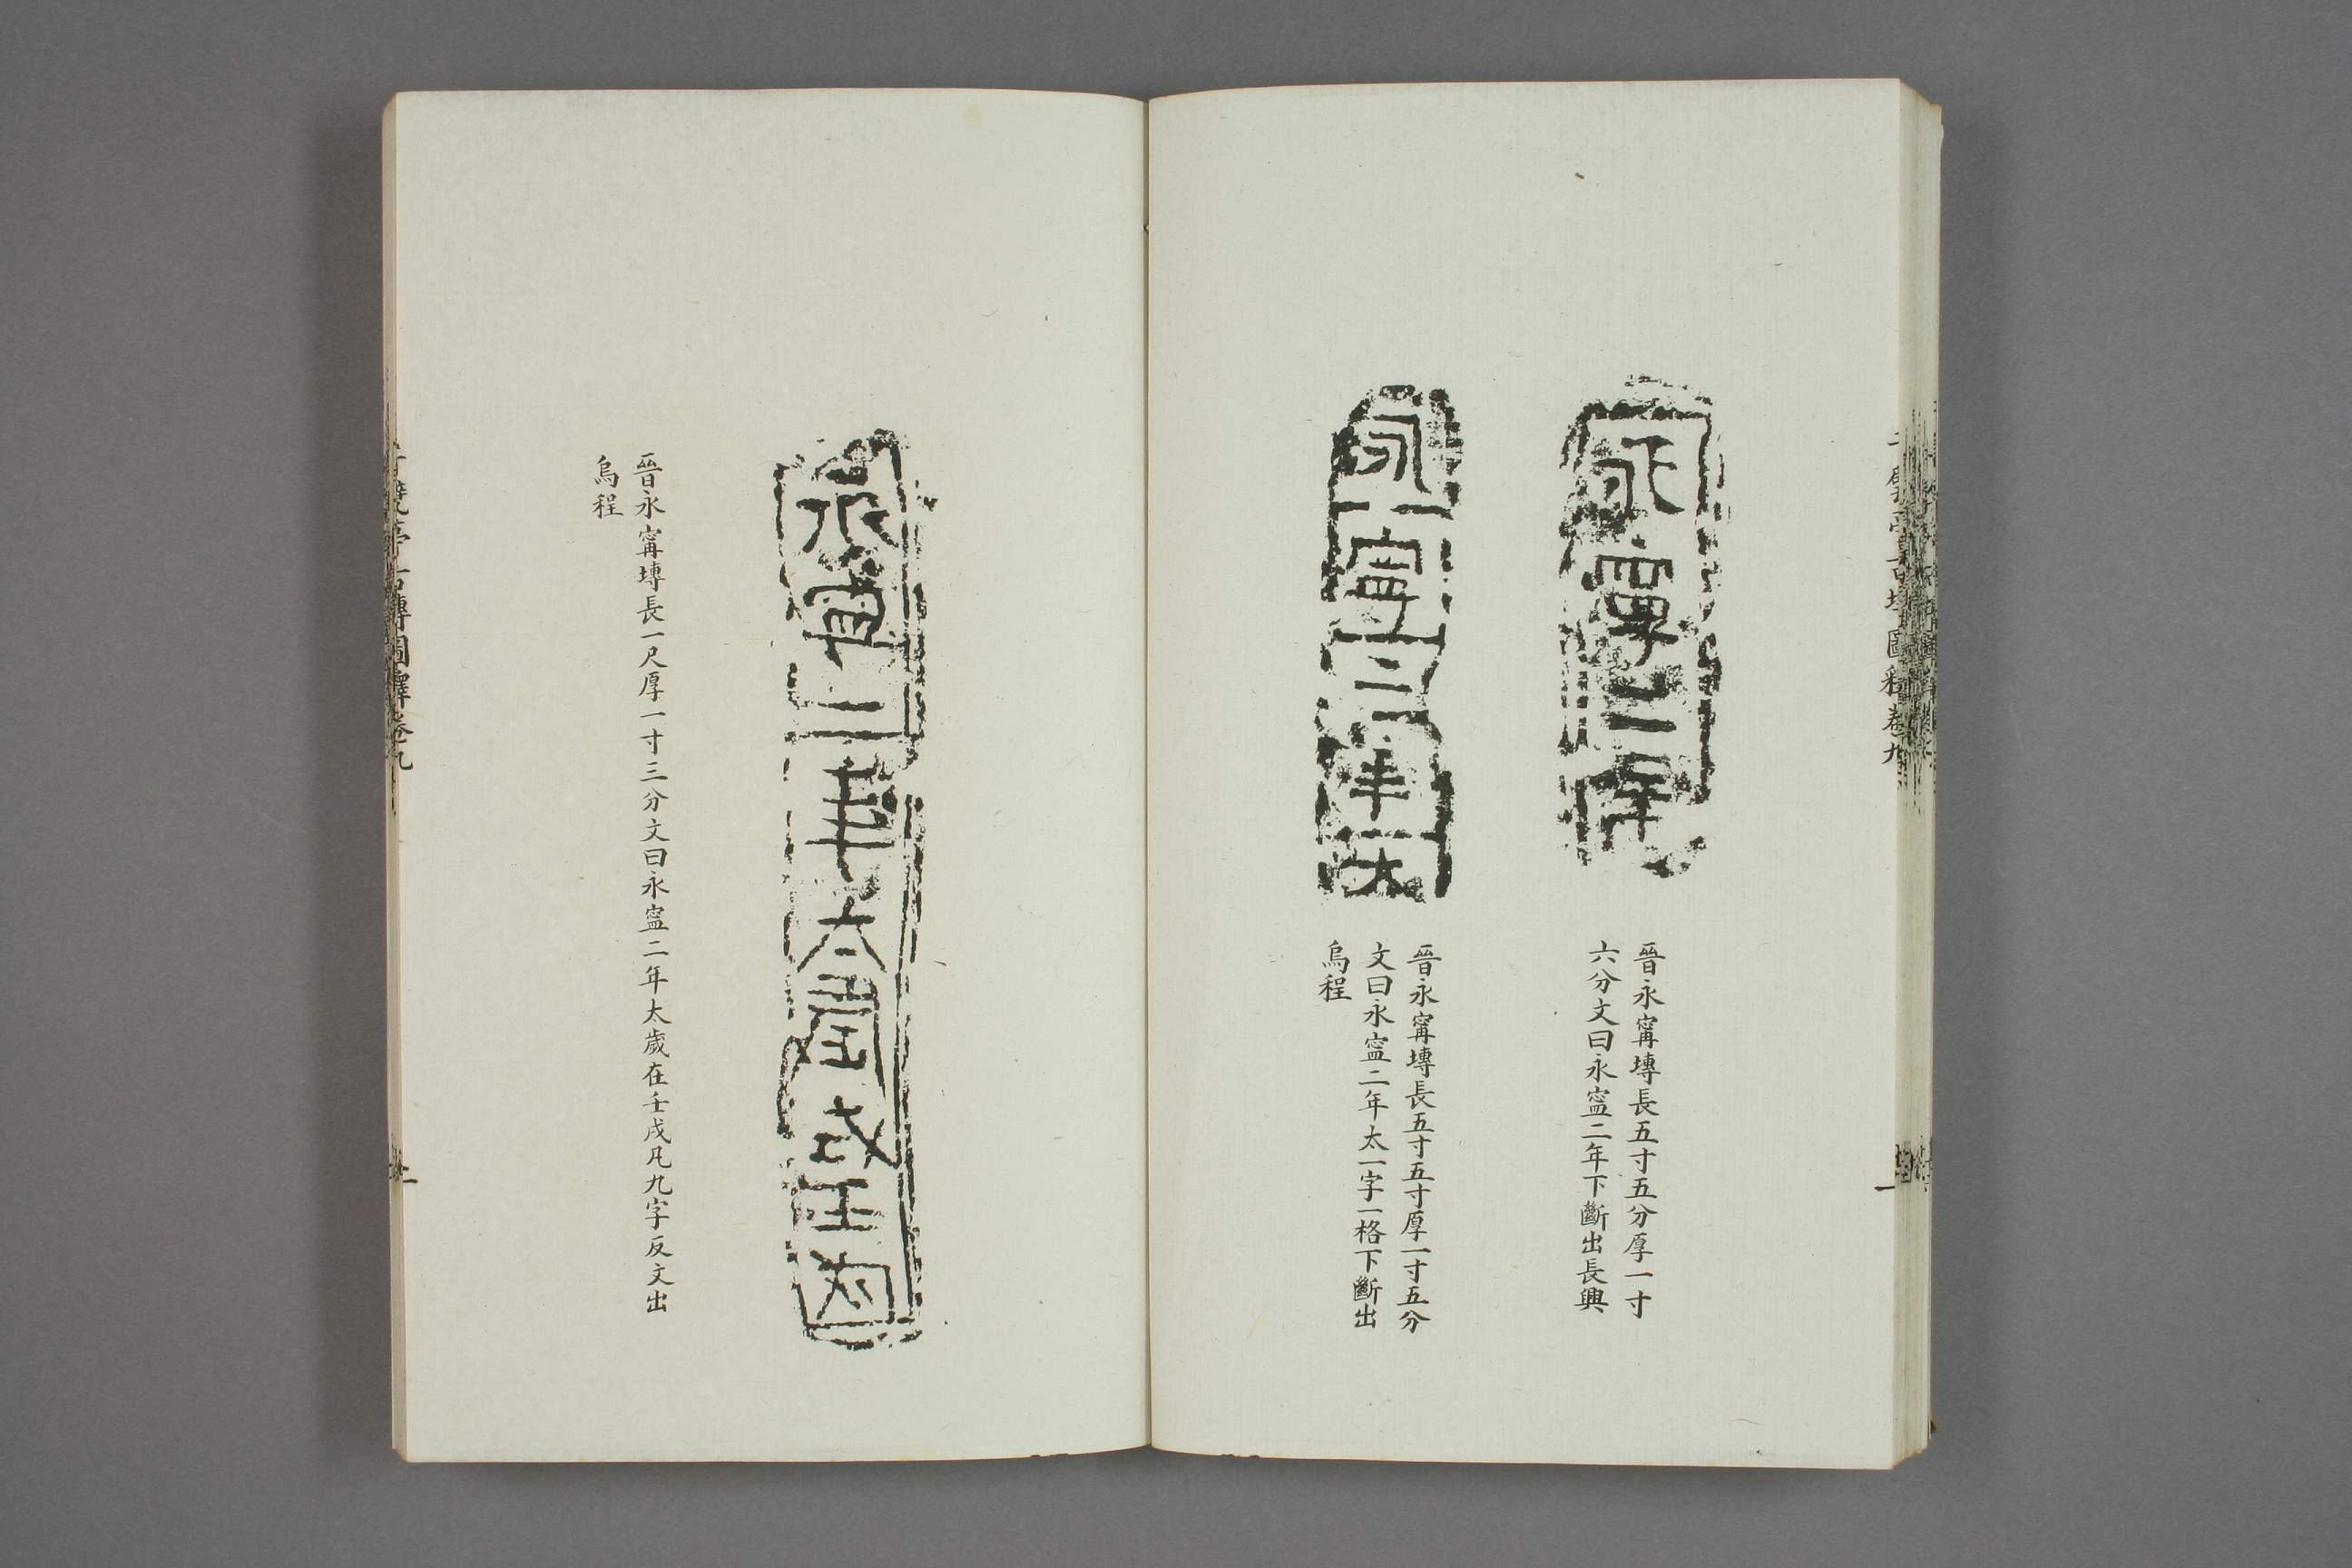 永寧二年
晉永甯塼長五寸五分厚一寸
六分文曰永寍二年下斷出長興
永寧二年太
晉永甯塼長五寸五寸厚一寸五分
文曰永寍二年太一字一格下斷出
烏程
永寧二年太歲在壬戌
晉永甯塼長一尺厚一寸三分文曰永寍二年太歲在壬戌凡九字反文出
烏程
千甓亭古塼圖釋卷九